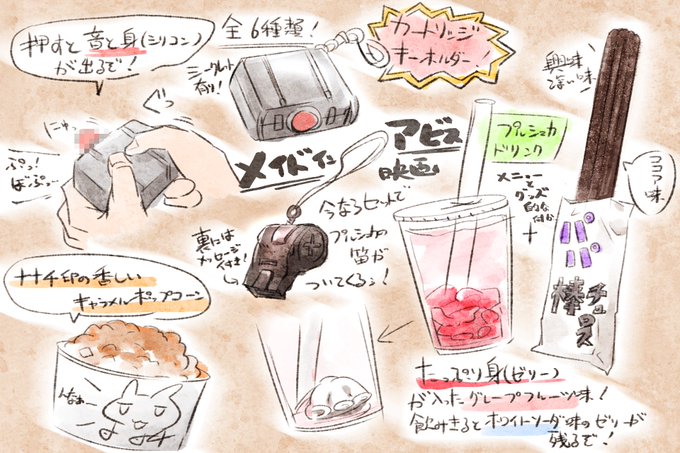 押すと音と身(シリコン)
が出るで!
全6種類!
シークレット
有り!
カートリッジ
キーホルダー!
ぐっ
にゅ
ぷっ!
ばぷっ
メイドイン
アビス
映画
プルシュカ
ドリンク
メニューと
グッズ
的な何か
興味
深い味
ココア味
パパ
棒
チュロス
今ならセットで
プルシュカの
笛が
ついてくるぅ!
裏には
メッセージ
付き!
ナナチ印の香しい
キャラメルポップコーン
んなぁー
たっぷり身(ゼリー)
が入ったグレープフルーツ味!
飲みきるとホワイトソーダ味のゼリーが
残るで!